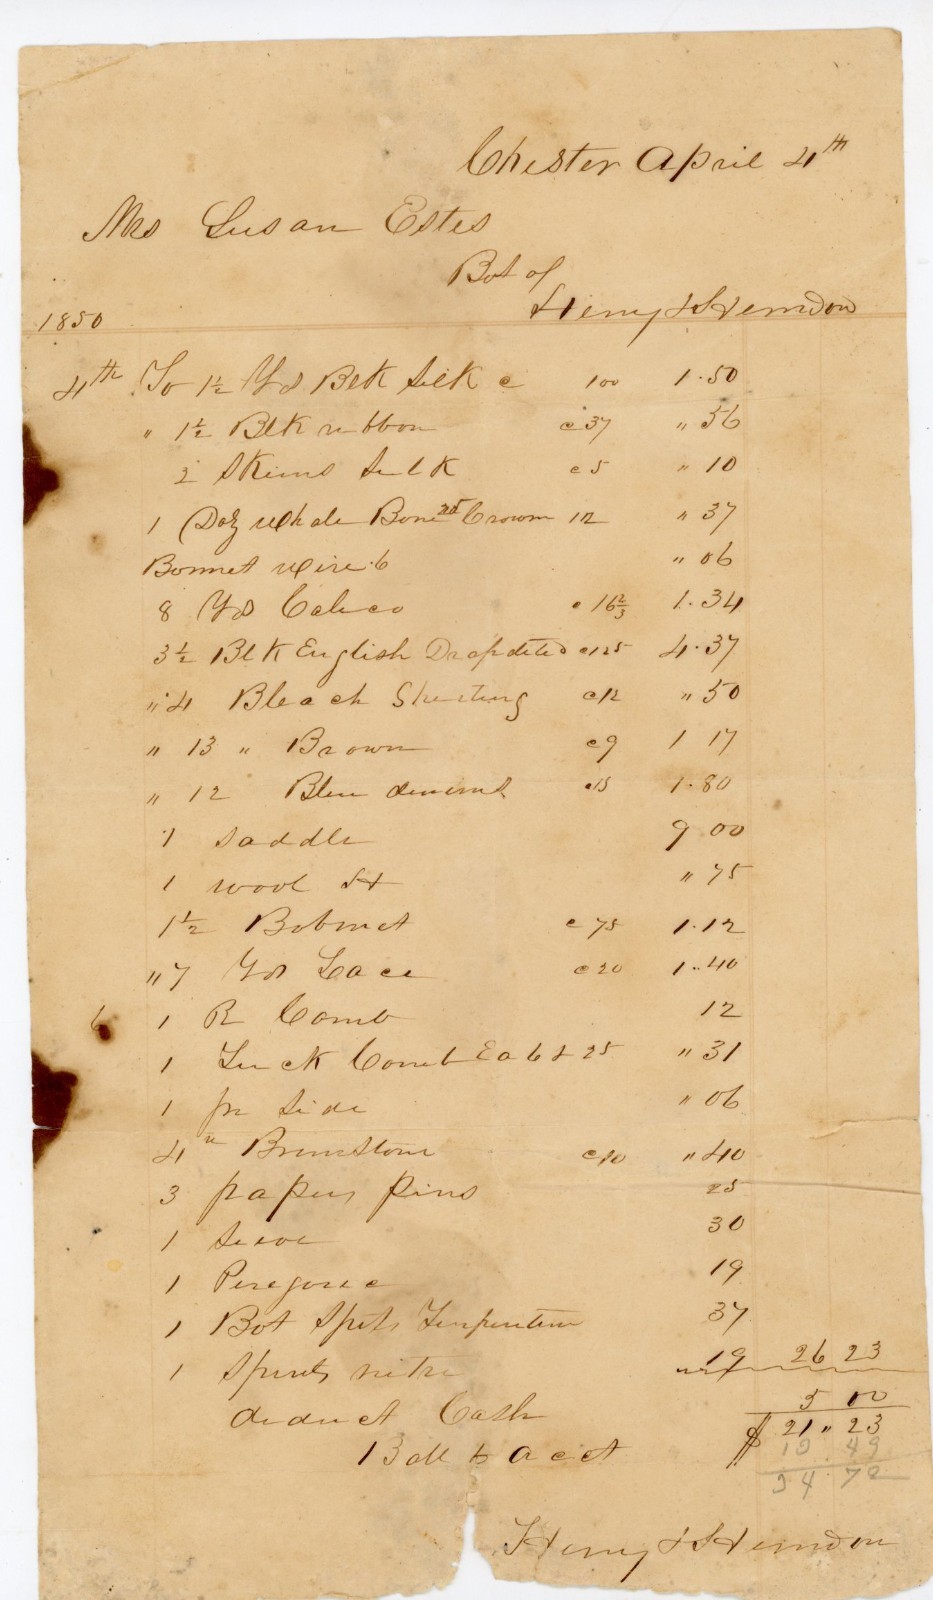 Chester April 4th
Mrs Susan Estes
Bot of
Henry & Herndon
1850
4th To 1½ Yds Blk Silk c 100 1.50
" 1½ Blk ribbon c 37 " 56
2 Skeins Silk c 5 " 10
1 Doz Whale Bone 25 Crown 12 " 37
Bonnet wire 6 " 06
8 Yds Calico c 16⅔ 1.34
3½ Blk English Drapdete c 125 4.37
" 4 Bleach Sheeting c 12 " 50
" 13 " Brown c 9 1 17
" 12 Blue c 15 1.80
1 saddle 9 00
1 wool Ht " 75
1½ Bobinet c 75 1.12
" 7 Yds Lace c 20 1.40
1 R Comb 12
1 Tuck Comb 6 & 25 " 31
1 pr Side " 06
4 Brimstone c 10 " 40
3 papers pins 25
1 Sieve 30
1 Peregoric 19
1 Bot Spts Turpentine 37
1 Spirits nitre 19 26 23
deduct Cash 5 00
Ball to acct $ 21 " 23
13 49
34.72
Henry & Herndon